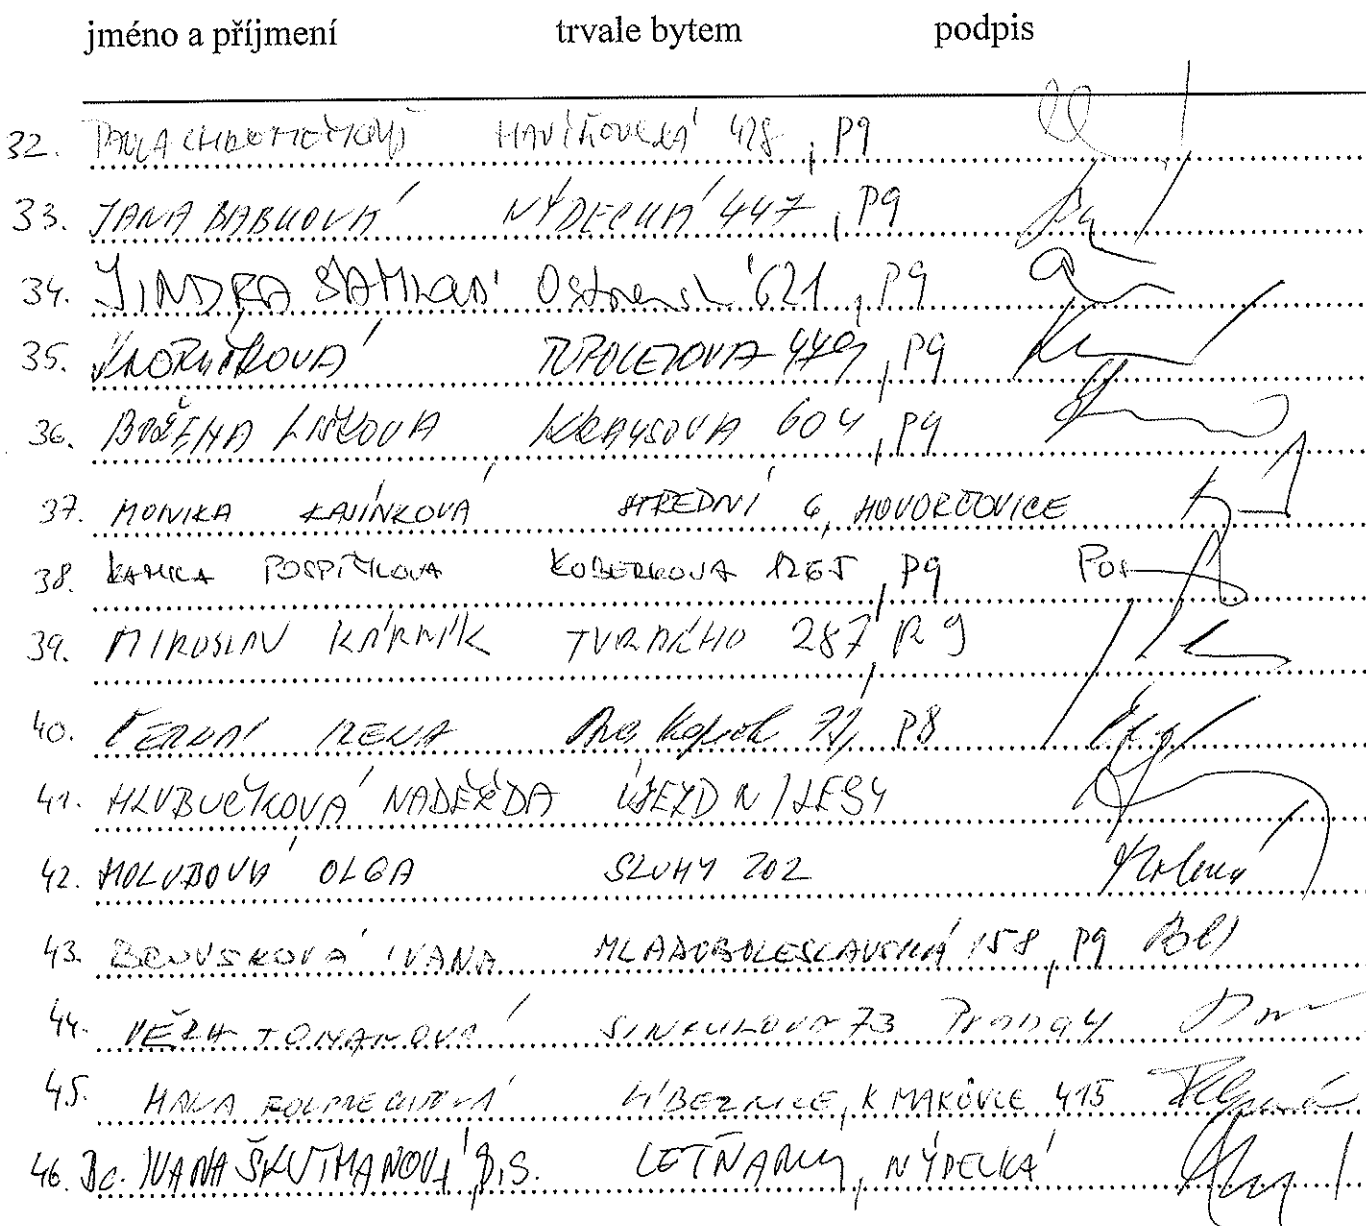 jméno a příjmení trvale bytem podpis
32. HAVÍŘOVSKÁ 428, P9
33. JANA BABKOVÁ NÝDECKÁ 447, P9
34. JINDRA Ostravská 621, P9
35. TUPOLEVOVA 449, P9
36. BOŽENA LIŠKOVA KRAUSOVA 604, P9
37. MONIKA KAVÍNKOVÁ STŘEDNÍ 6, HOVORČOVICE
38. KAMILA POSPÍŠILOVA KOBERKOVA 1265, P9
39. MIROSLAV KÁRNÍK TVRDÉHO 287, P 9
40. ČERNÁ IRENA 72, P8
41. HLUBUČKOVÁ NADĚŽDA ÚJEZD N/LESY
42. HOLUBOVÁ OLGA SLUHY 202
43. BROUSKOVÁ IVANA MLADOBOLESLAVSKÁ 158, P9
44. VĚRA TOMANOVÁ SINKULOVA 73 Praha 4
45. HANA LÍBEZNICE, K MAKOVCE 415
46. Bc. IVANA ŠKUTHANOVÁ, DiS. LETŇANY, NÝDECKÁ